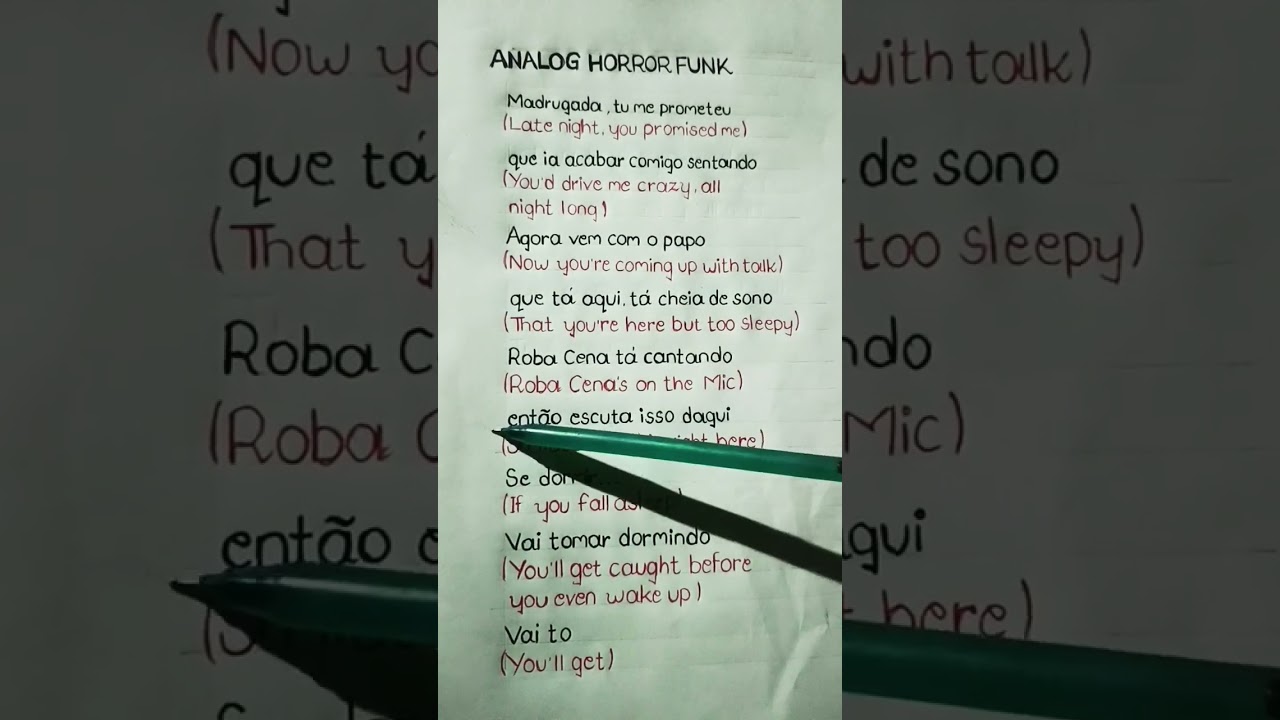 ANALOG HORROR FUNK
Madrugada, tu me prometeu
(Late night, you promised me)
que ia acabar comigo sentando
(You'd drive me crazy, all
night long)
Agora vem com o papo
(Now you're coming up with talk)
que tá aqui, tá cheia de sono
(That you're here but too sleepy)
Roba Cena tá cantando
(Roba Cena's on the Mic)
então escuta isso daqui
here)
Se
(If you fall
Vai tomar dormindo
(You'll get caught before
you even wake up)
Vai to
(You'll get)